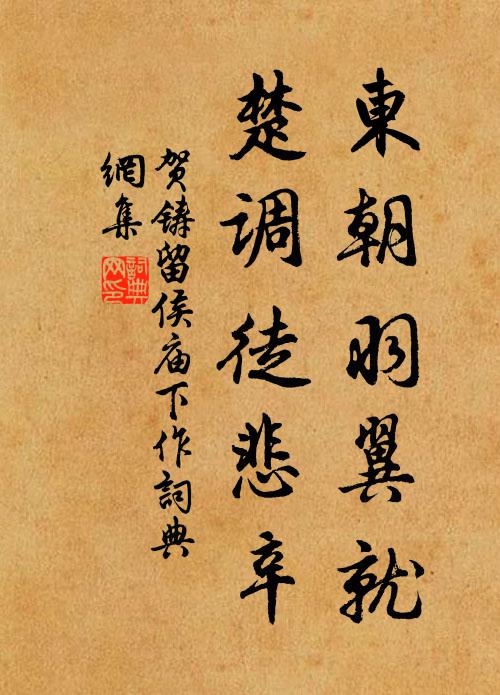 東朝羽翼就
楚调徒悲辛
贺鑄留侯庙下作詞典
網集
詞典网印